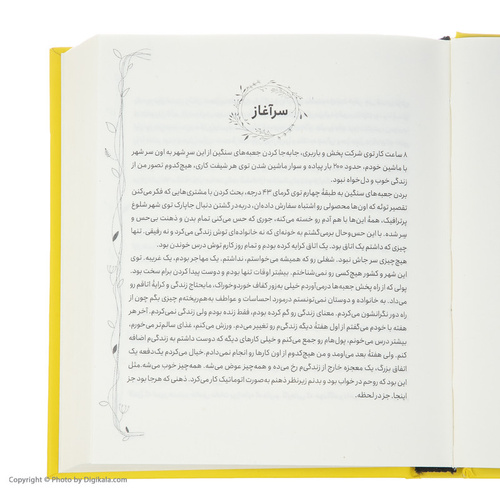 سرآغاز
۸ ساعت کار توی شرکت پخش و باربری، جابه‌جا کردن جعبه‌های سنگین از این سر شهر به اون سر شهر
با ماشین خودم، حدود ۲۰۰ بار پیاده و سوار ماشین شدن توی هر شیفت کاری، هیچ‌کدوم تصور من از
زندگی خوب و دل‌خواه نبود.
بردن جعبه‌های سنگین به طبقهٔ چهارم توی گرمای ۴۳ درجه، بحث کردن با مشتری‌هایی که فکر می‌کنن
تقصیر توئه که اون‌ها محصولی رو اشتباه سفارش داده‌ان، دربه‌در گشتن دنبال جاپارک توی شهر شلوغ
پرترافیک، همهٔ این‌ها با هم آدم رو خسته می‌کنه، جوری که حس می‌کنی تمام بدن و ذهنت بی‌حس و
سِر شده. با این حس‌وحال برمی‌گشتم به خونه‌ای که نه خانواده‌ای توش زندگی می‌کرد و نه رفیقی. تنها
چیزی که داشتم یک اتاق بود. یک اتاق کرایه کرده بودم و تمام روز کارم توش درس خوندن بود.
هیچ‌چیزی سر جاش نبود. شغلی رو که همیشه می‌خواستم، نداشتم. یک مهاجر بودم، یک غریبه. توی
این شهر و کشور هیچ‌کسی رو نمی‌شناختم. بیشتر اوقات تنها بودم و دوست پیدا کردن برام سخت بود.
پولی که از راه پخش جعبه‌ها درمی‌آوردم خیلی به‌زور کفاف خوردوخوراک، مایحتاج زندگی و کرایهٔ اتاقم رو
می‌داد. به خانواده و دوستان نمی‌تونستم درمورد احساسات و عواطف به‌هم‌ریخته‌م چیزی بگم چون از
راه دور نگرانشون می‌کردم. معنای زندگی رو گم کرده بودم، فقط زنده بودم ولی زندگی نمی‌کردم. آخر هر
هفته با خودم می‌گفتم از اول هفتهٔ دیگه زندگی‌م رو تغییر می‌دم. ورزش می‌کنم، غذای سالم‌تر می‌خورم،
بیشتر درس می‌خونم، پول‌هام رو جمع می‌کنم و خیلی کارهای دیگه که دوست داشتم به زندگی‌م اضافه
کنم. ولی هفتهٔ بعد می‌اومد و من هیچ‌کدوم از اون کارها رو انجام نمی‌دادم. خیال می‌کردم یک‌دفعه یک
اتفاق بزرگ، یک معجزه خارج از زندگی‌م رخ می‌ده و همه‌چیز عوض می‌شه. همه‌چیز خوب می‌شه. مثل
این بود که روحم در خواب بود و بدنم زیرنظر ذهنم به‌صورت اتوماتیک کار می‌کرد. ذهنی که هرجا بود جز
اینجا. جز در لحظه.
Copyright © Photo by Digikala.com